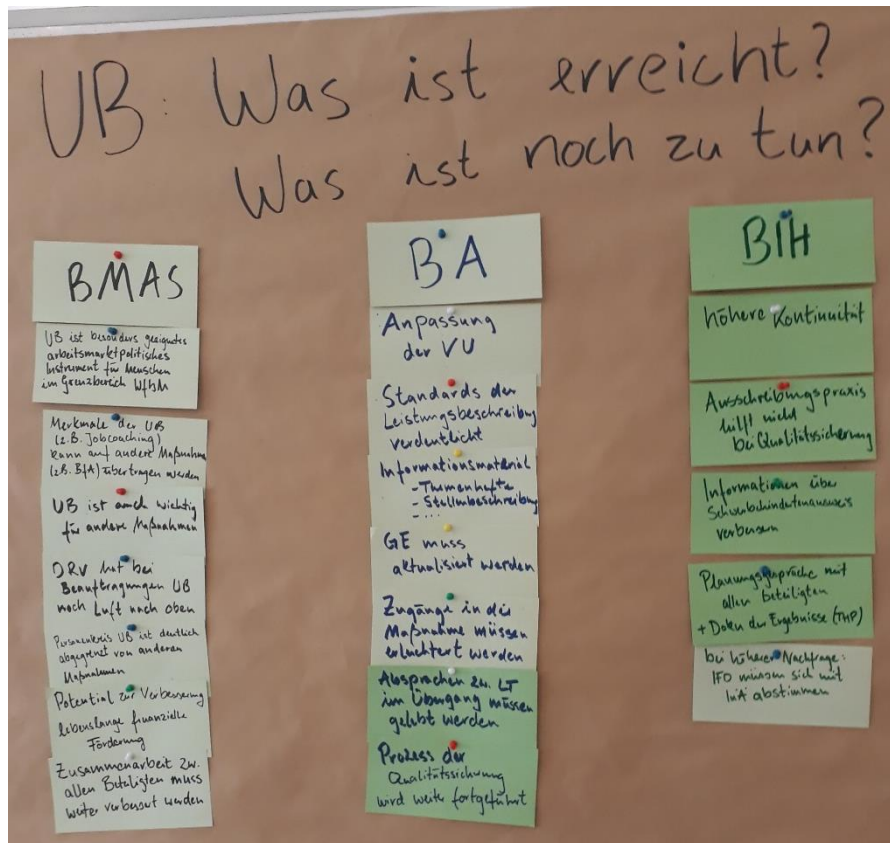 UB: Was ist erreicht?
Was ist noch zu tun?
BMAS
UB ist besonders geeignetes
arbeitsmarktpolitisches
Instrument für Menschen
im Grenzbereich WfbM
Merkmale der UB
(z.B. Jobcoaching)
kann auf andere Maßnahme
(z.B. BfA) übertragen werden
UB ist auch wichtig
für andere Maßnahmen
DRV hat bei
Beauftragungen UB
noch Luft nach oben
Personenkreis UB ist deutlich
abgegrenzt von anderen
Maßnahmen
Potential zur Verbesserung
lebenslange finanzielle
Förderung
Zusammenarbeit zw.
allen Beteiligten muss
weiter verbessert werden
BA
Anpassung
der VU
Standards der
Leistungsbeschreibung
verdeutlicht
Informationsmaterial
- Themenhefte
- Stellenbeschreibung
- ...
GE muss
aktualisiert werden
Zugänge in die
Maßnahme müssen
erleichtert werden
Absprachen zw. LT
im Übergang müssen
gelebt werden
Prozess der
Qualitätssicherung
wird weiter fortgeführt
BIH
höhere Kontinuität
Ausschreibungspraxis
hilft nicht
bei Qualitätssicherung
Informationen über
Schwerbehindertenausweis
verbessern
Planungsgespräche mit
allen beteiligten
+ Doku der Ergebnisse (THP)
bei höherer Nachfrage:
IFD müssen sich mit
InA abstimmen